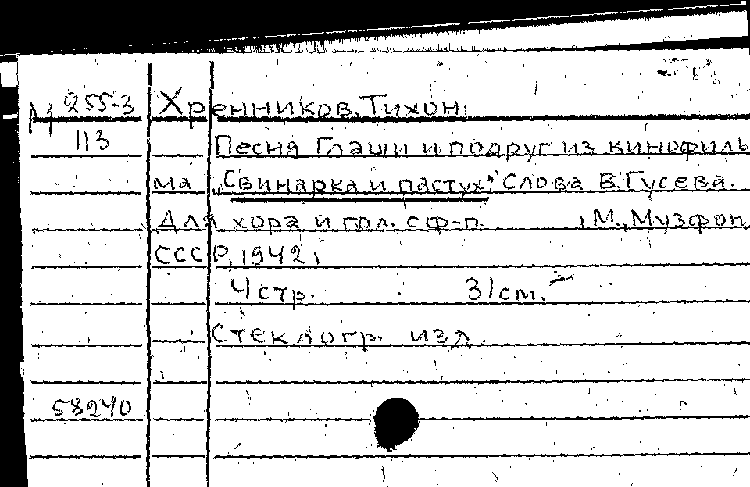 М 255-3 Хренников, Тихон.
113 Песня Глаши и подруг из кинофиль
ма „Свинарка и пастух“ Слова В. Гусева.
Для хора и гол. с ф-п. , М., Музфон
СССР, 1942.
4 стр. 31 см.
Стеклогр. изд.
58240